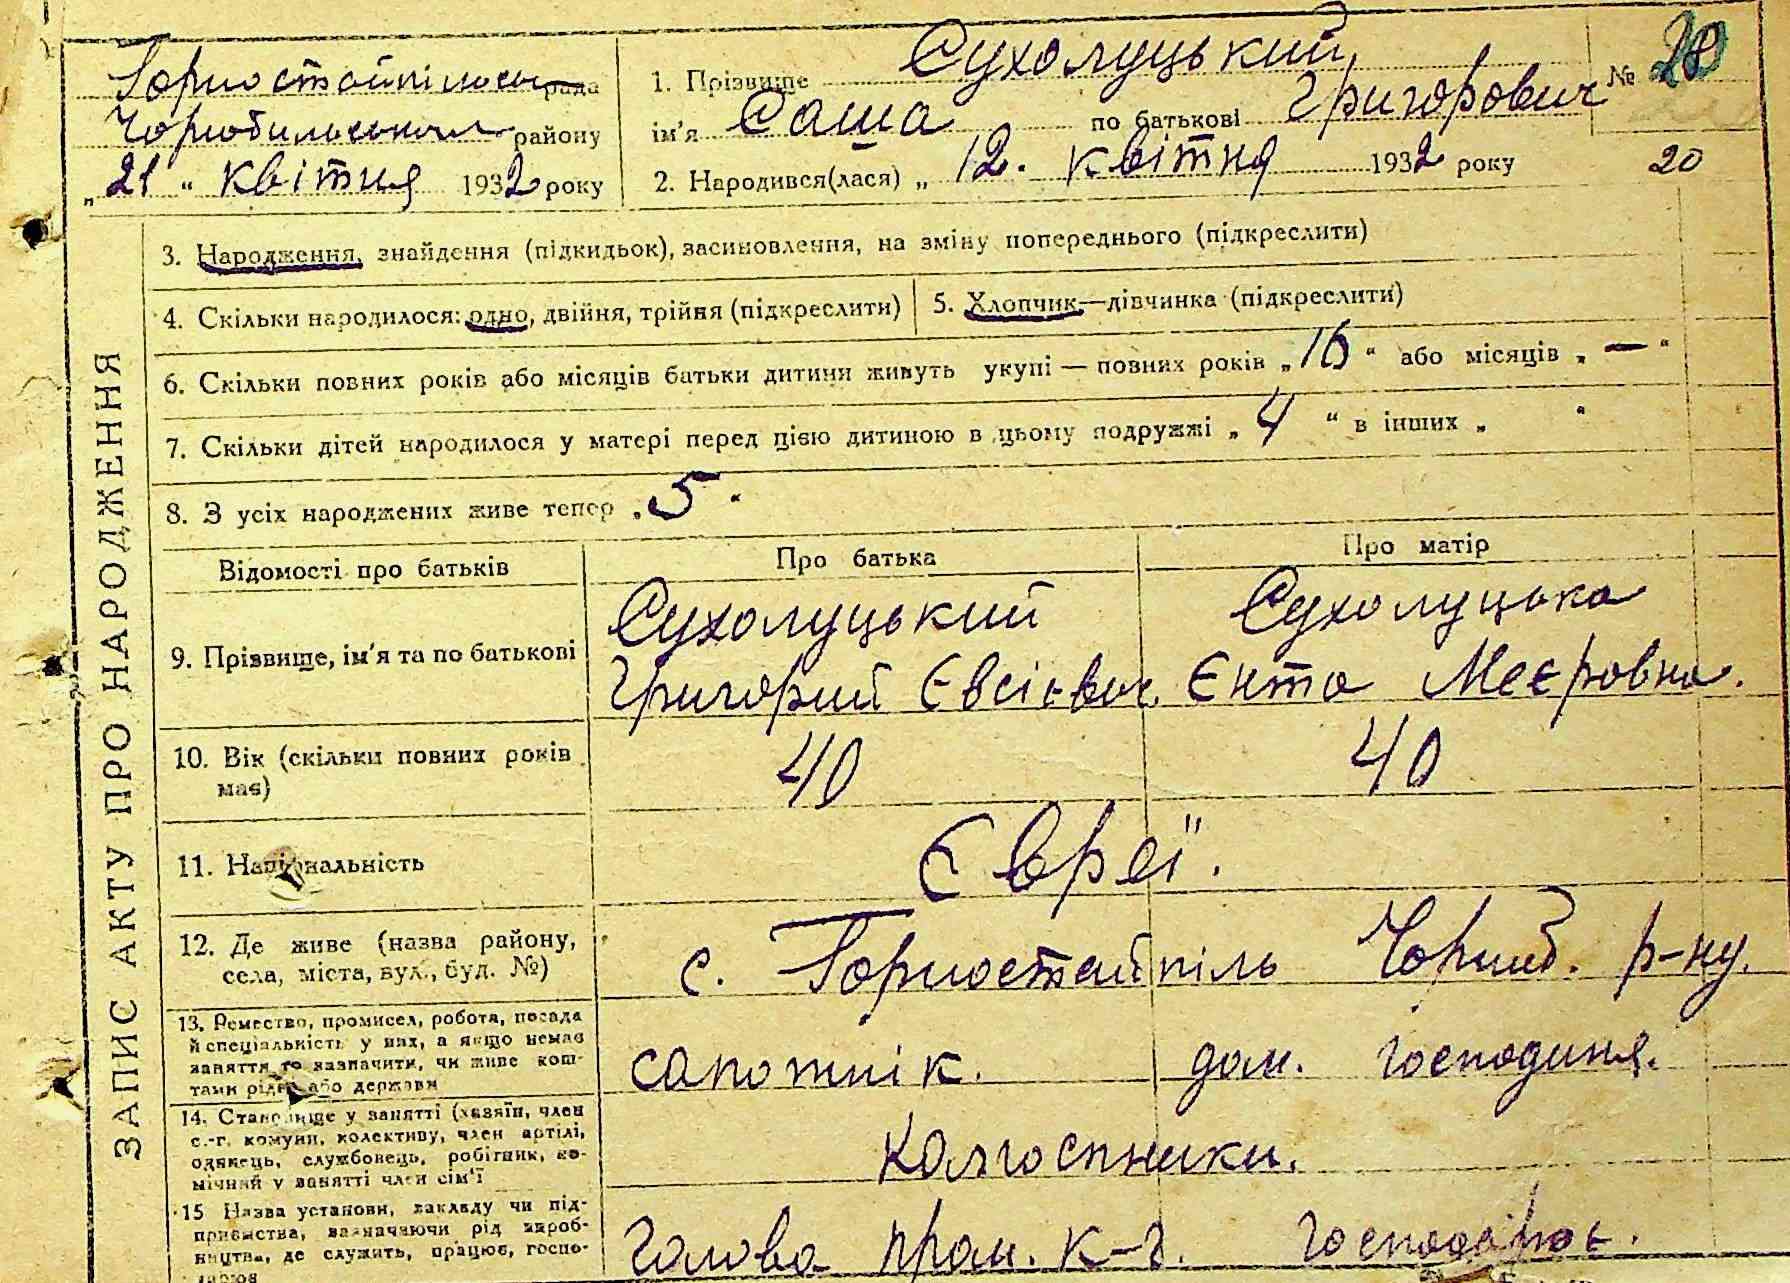 Горностайпільська рада
Чорнобильського району
„21“ квітня 1932 року
1. Прізвище Сухолуцький
ім'я Саша по батькові Григорович
2. Народився(лася) „12. квітня 1932 року
№ 20
20
ЗАПИС АКТУ ПРО НАРОДЖЕННЯ
3. Народження, знайдення (підкидьок), засиновлення, на зміну попереднього (підкреслити)
4. Скільки народилося: одно, двійня, трійня (підкреслити)
5. Хлопчик—дівчинка (підкреслити)
6. Скільки повних років або місяців батьки дитини живуть укупі — повних років „16“ або місяців „—“
7. Скільки дітей народилося у матері перед цією дитиною в цьому подружжі „4“ в інших „ “
8. З усіх народжених живе тепер „5“
Відомості про батьків
Про батька
Про матір
9. Прізвище, ім'я та по батькові
Сухолуцький
Григорий Євсієвич.
Сухолуцька
Єнта Меєровна.
10. Вік (скільки повних років
має)
40
40
11. Національність
Євреї.
12. Де живе (назва району,
села, міста, вул., буд. №)
с. Горностайпіль Чорноб. р-ну.
13. Ремество, промисел, робота, посада
й спеціяльність у них, а якщо немає
заняття то зазначити, чи живе кош-
тами рідні або держави
сапожнік.
дом. господиня.
14. Становище у занятті (хазяїн, член
с.-г. комуни, колективу, член артілі,
одинець, службовець, робітник, по-
мічний у занятті член сім'ї
колгоспники.
15 Назва установи, закладу чи під-
приємства, зазначаючи рід вироб-
ництва, де служить, працює, госпо-
дарює
Голова пром. к-г.
господарює.